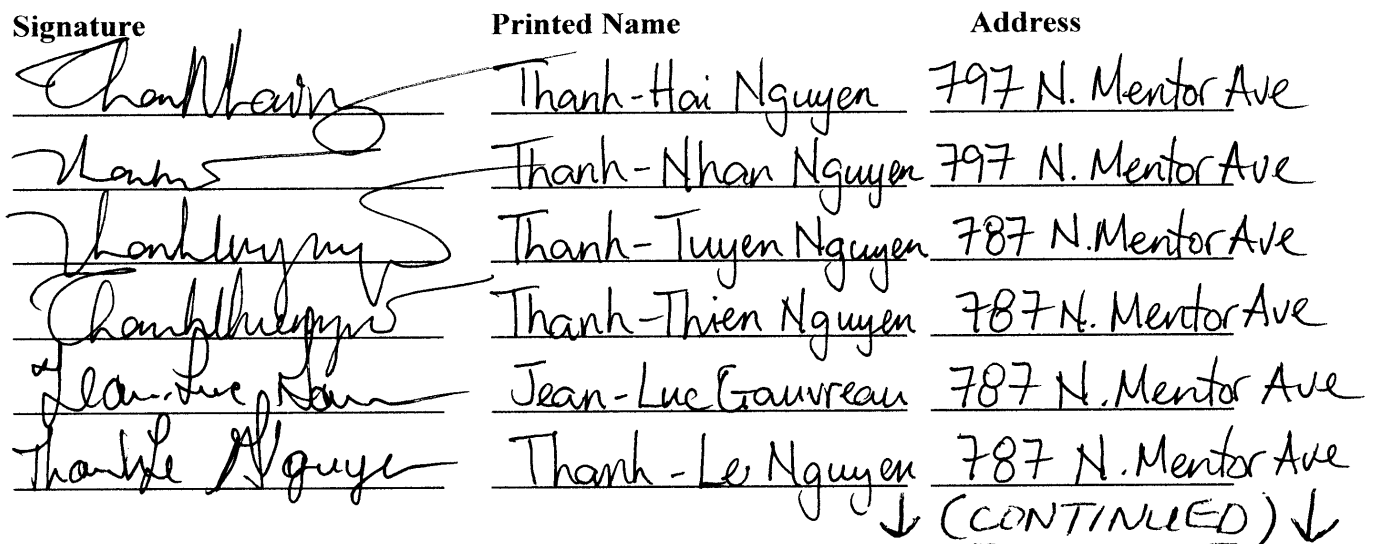 Signature Printed Name Address
Thanh-Hai Nguyen 797 N. Mentor Ave
Thanh-Nhan Nguyen 797 N. Mentor Ave
Thanh-Tuyen Nguyen 787 N. Mentor Ave
Thanh-Thien Nguyen 787 N. Mentor Ave
Jean-Luc Jean-Luc Gauvreau 787 N. Mentor Ave
Thanh-Le Nguyen Thanh-Le Nguyen 787 N. Mentor Ave
↓ (CONTINUED) ↓